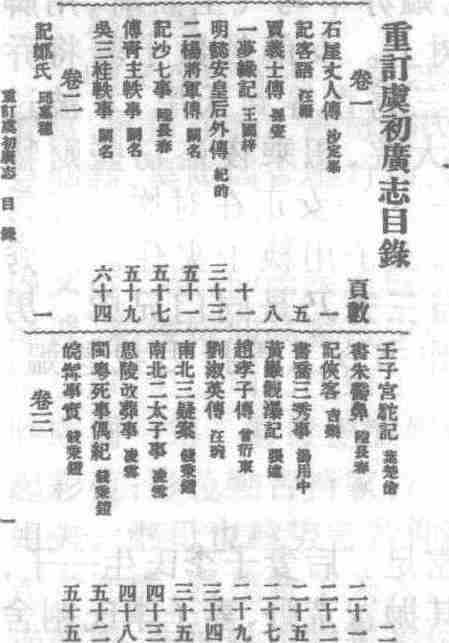 重訂虞初廣志目錄
卷一 頁數
石屋丈人傳 沙定峯 一
記客語 汪縉 五
賈義士傳 孫萱 八
一夢緣記 王國梓 十一
明懿安皇后外傳 紀昀 三十三
二楊將軍傳 闕名 五十一
記沙七事 陸長春 五十七
傅青主軼事 闕名 五十九
吳三桂軼事 闕名 六十四
卷二
記鄭氏 一
重訂虞初廣志 目錄 一
壬子宮駝記 葉楚傖
書朱 陸長春 二十一
記俠客 二十二
書喬三秀事 湯用中 二十五
黃 觀瀑記 張遠 二十七
趙孝子傳 曾衍東 二十九
劉淑英傳 汪琬 三十四
南北三疑案 錢秉鐙 三十五
南北二太子事 凌雪 四十三
思陵改葬事 凌雪 四十八
閩粵死事偶紀 錢秉鐙 五十二
皖髯事實 錢秉鐙 五十五
卷三